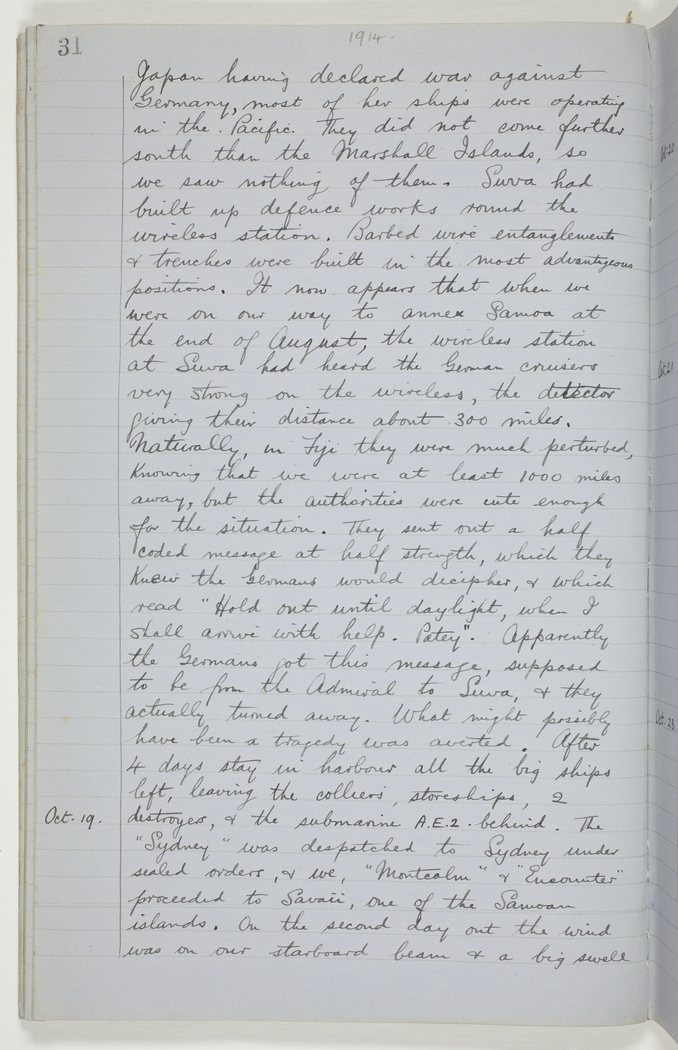 31
1914.
Japan having declared war against
Germany, most of her ships were operating
in the. Pacific. They did not come further
south than the Marshall Islands, so
we saw nothing of them. Suva had
built up defence works round the
wireless station. Barbed wire entanglements
& trenches were built in the most advantageous
positions. It now appears that when we
were on our way to annex Samoa at
the end of August, the wireless station
at Suva had heard the German cruisers
very strong on the wireless, the detector
giving their distance about 300 miles.
Naturally, in Fiji they were much perturbed,
knowing that we were at least 1000 miles
away, but the authorities were cute enough
for the situation. They sent out a half
coded message at half strength, which they
knew the Germans would decipher, & which
read "Hold out until daylight, when I
shall arrive with help. Patey". Apparently
the Germans got this message, supposed
to be from the Admiral to Suva, & they
actually turned away. What might possibly
have been a tragedy was averted. After
4 days stay in harbour all the big ships
left, leaving the colliers, storeships, 2
Oct. 19. destroyers, & the submarine A.E.2. behind. The
"Sydney" was despatched to Sydney under
sealed orders, & we, "Montcalm" & "Encounter"
proceeded to Savaii, one of the Samoan
islands. On the second day out the wind
was on our starboard beam & a big swell
Oct. 21
Oct. 23.